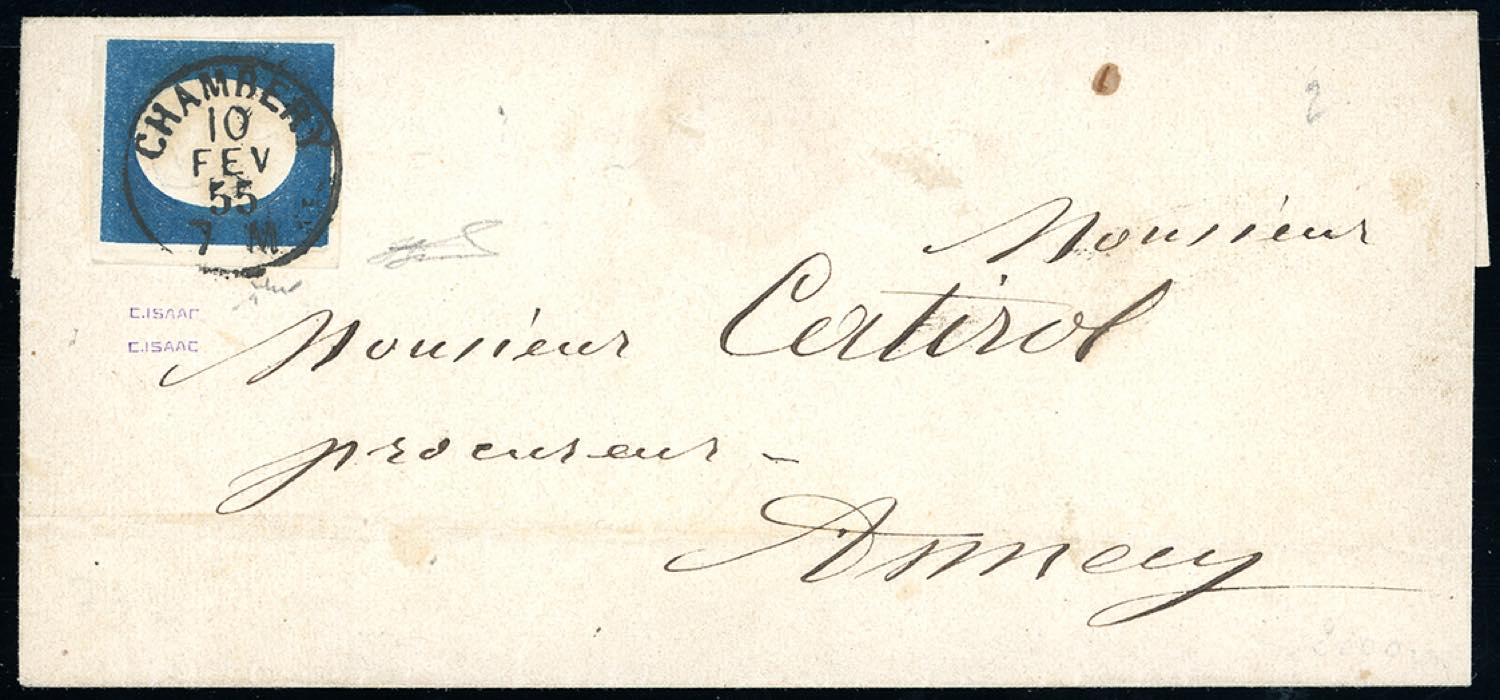 CHAMBERY
10
FEV
55
7 M
C.ISAAC
C.ISAAC
Monsieur
Monsieur Catirol
procureur -
Annecy